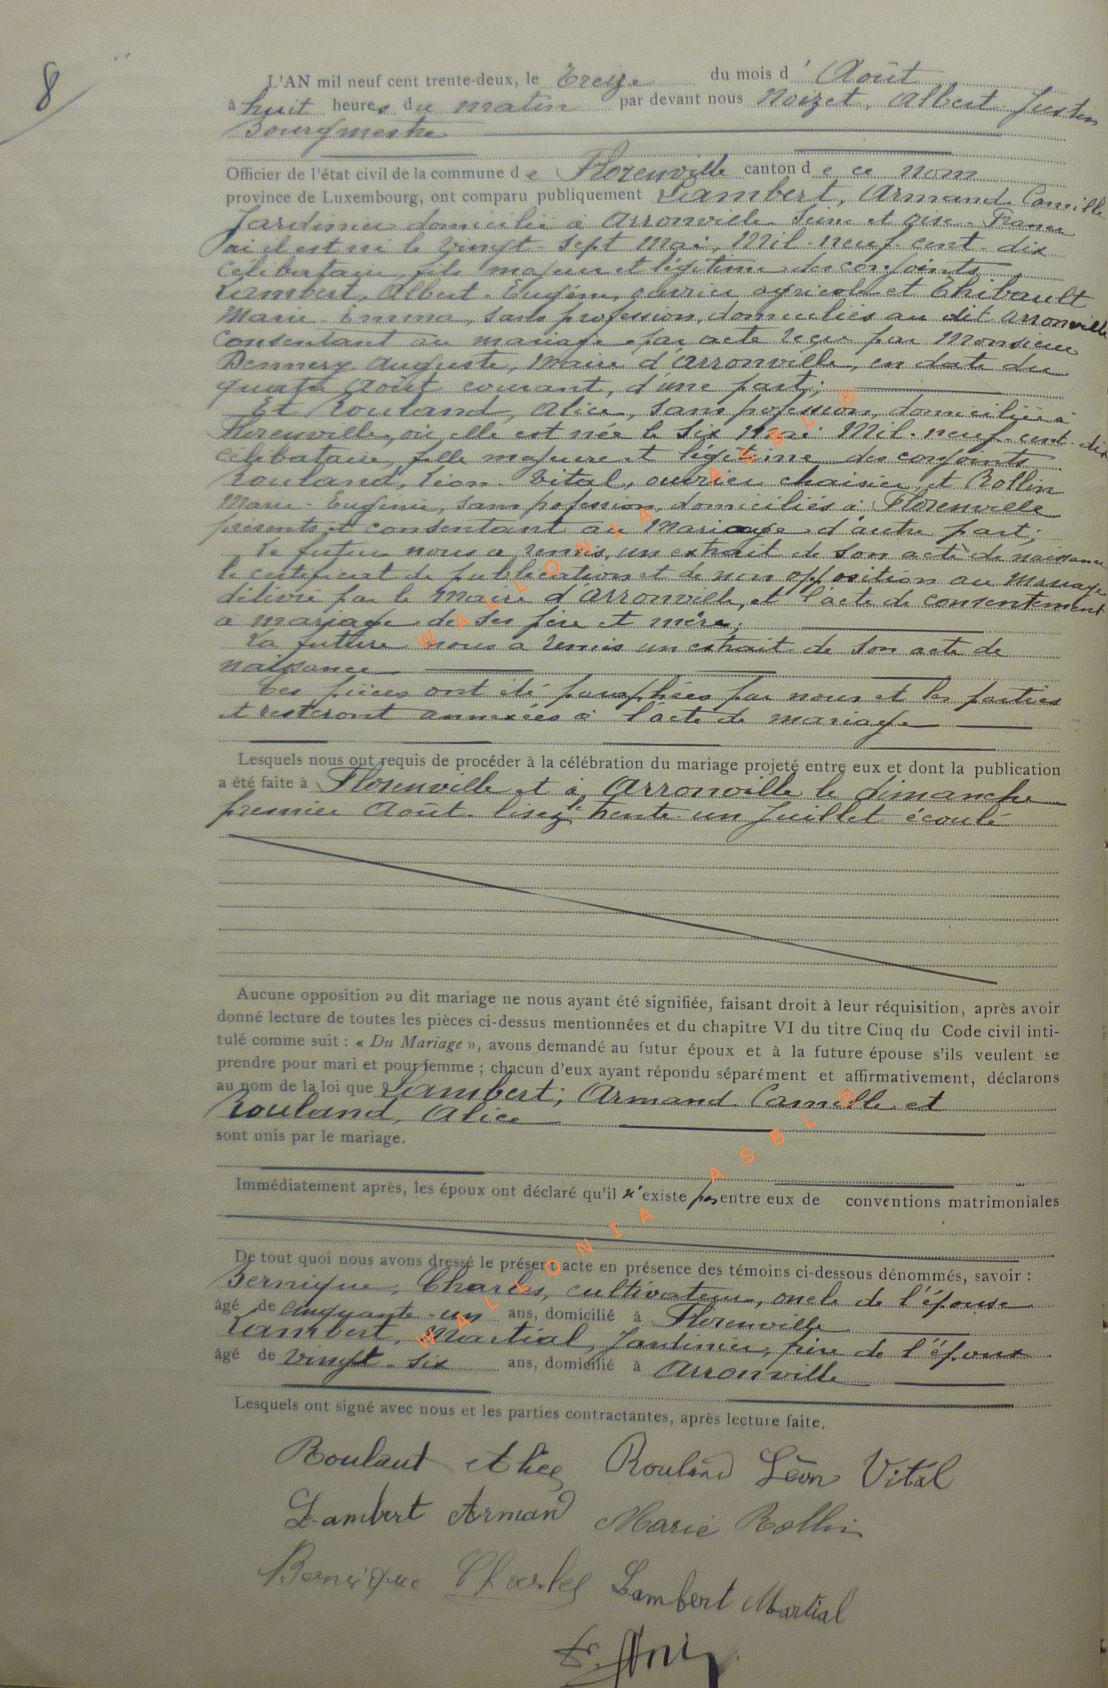 8
L'AN mil neuf cent trente-deux, le Treize du mois d' Août
à huit heures du matin par devant nous Noizet, Albert Justin
Bourgmestre
Officier de l'état civil de la commune de Florenville canton de ce nom
province de Luxembourg, ont comparu publiquement Lambert, Armand Camille
Jardinier domicilié à Arronville Seine et Oise - France
où il est né le vingt sept Mai, Mil-neuf-cent-dix
célibataire, fils majeur et légitime des conjoints
Lambert, Albert-Eugène, ouvrier agricole et Thibault
Marie-Emma, sans profession, domiciliés au dit Arronville
consentant au mariage par acte reçu par Monsieur
Dennery Auguste, Maire d'Arronville, en date du
quatre Août courant, d'une part;
Et Rouland, Alice, sans profession, domiciliée à
Florenville, où elle est née le six Mil-neuf-cent-dix
célibataire, fille majeure et légitime des conjoints
Rouland, Léon-Vital, ouvrier chaisier, et Rollin
Marie-Eugénie, sans profession, domiciliés à Florenville
présents et consentant au Mariage d'autre part;
Le futur nous a remis, un extrait de son acte de naissance
le certificat de publication et de non opposition au mariage
délivré par le Maire d'Arronville, et l'acte de consentement
à mariage de ses père et mère;
La future nous a remis un extrait de son acte de
naissance
Ces pièces ont été paraphées par nous et les parties
et resteront annexées à l'acte de mariage
Lesquels nous ont requis de procéder à la célébration du mariage projeté entre eux et dont la publication
a été faite à Florenville et à Arronville le dimanche
premier Août. lisez le trente-un Juillet écoulé
Aucune opposition au dit mariage ne nous ayant été signifiée, faisant droit à leur réquisition, après avoir
donné lecture de toutes les pièces ci-dessus mentionnées et du chapitre VI du titre Cinq du Code civil inti-
tulé comme suit : « Du Mariage », avons demandé au futur époux et à la future épouse s'ils veulent se
prendre pour mari et pour femme ; chacun d'eux ayant répondu séparément et affirmativement, déclarons
au nom de la loi que Lambert, Armand Camille et
Rouland, Alice
sont unis par le mariage.
Immédiatement après, les époux ont déclaré qu'il n'existe pas entre eux de conventions matrimoniales
De tout quoi nous avons dressé le présent acte en présence des témoins ci-dessous dénommés, savoir :
Bernique, Charles, cultivateur, oncle de l'épouse
âgé de cinquante-un ans, domicilié à Florenville
Lambert, Martial, Jardinier, frère de l'époux
âgé de vingt-six ans, domicilié à Arronville
Lesquels ont signé avec nous et les parties contractantes, après lecture faite.
Roulaut Alice Rouland Léon Vital
Lambert Armand Marie Rollin
Bernique Charles Lambert Martial
WALLONIA ASBL ®
WALLONIA ASBL ®